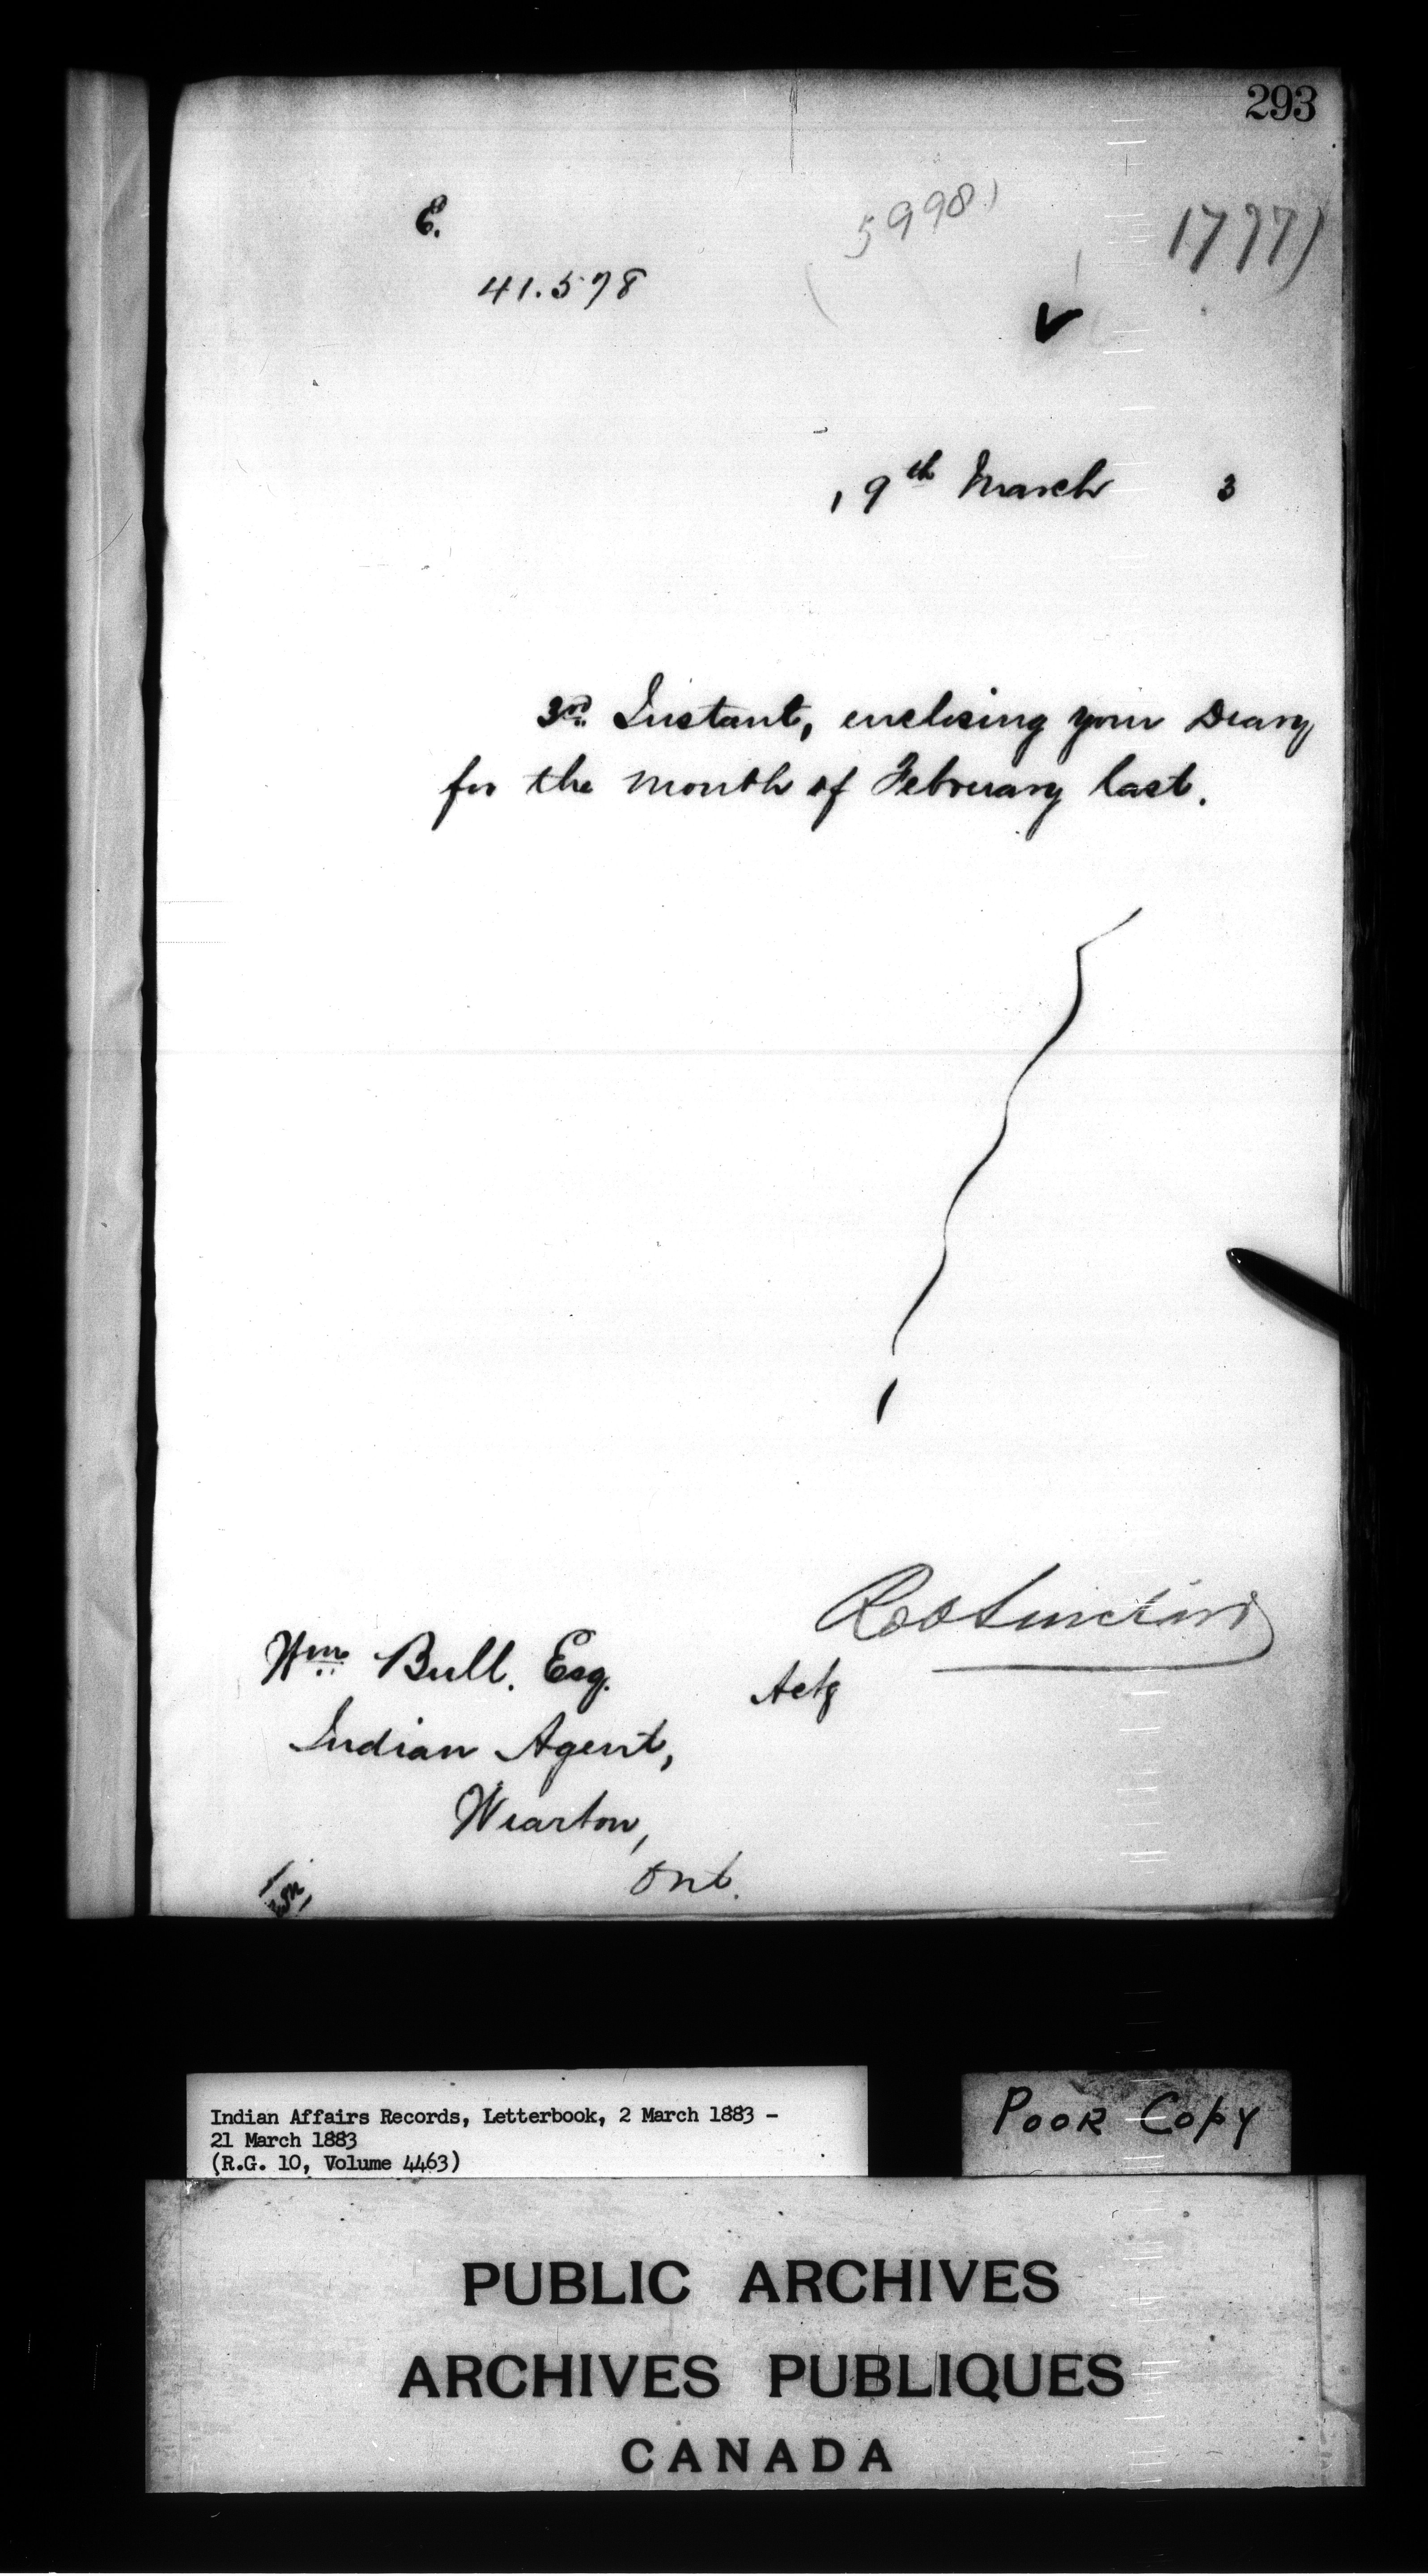 293
E.
5998)
1777)
41.578
19th March 3
3rd. Instant, enclosing your Diary
for the month of February last.
Rob Sinclair
Wm Bull. Esq.
Actg
Indian Agent,
Wiarton,
Ont.
Indian Affairs Records, Letterbook, 2 March 1883 -
21 March 1883
(R.G. 10, Volume 4463)
POOR COPY
PUBLIC ARCHIVES
ARCHIVES PUBLIQUES
CANADA